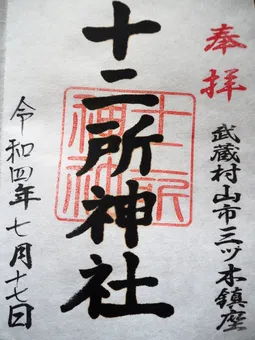 奉拝
武蔵村山市三ツ木鎮座
十二所神社
令和四年七月十七日